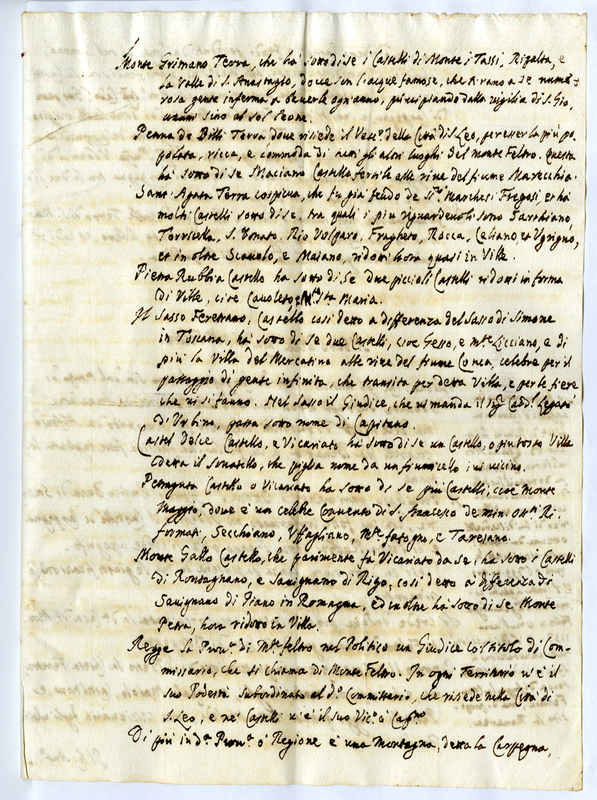 Monte Grimano Terra, che hà sotto di se i Castelli di Monte i Tassi, Ripalta, e
la Valle di S. Anastagio, dove son l'acque famose, che tirano a se nume=
rosa gente inferma a beverle ogn'anno, principiando dalla vigilia di S. Gio.
vanni sino al sol leone.
Penna de Billi Terra dove risiede il Vesc.º della Città di S. Leo, per esser la più po
polata, ricca, e commoda di tutti gli altri luoghi del monte Feltro. Questa
hà sotto di se Maciano Castello fertile alle rive del fiume Marecchia.
Sant'Agata Terra cospicua, che fu già feudo de SS.ri Marchesi Fregosi, et hà
molti Castelli sotto di se, tra quali i più riguardevoli sono Sarthiano,
Torricella, S. Donato, Rio Volgaro, Fragheto, Rocca, Caliano et Ugrigno,
et in oltre Scavolo, e Maiano, ridotti hora quasi in Ville.
Pietra Rubbia Castello ha sotto di se due piccioli Castelli ridotti in forma
di Ville, cioe Cavoleto, e Maria.
Il Sasso Feretrano, Castello così detto a differenza del Sasso di Simone
in Toscana, hà sotto di se due Castelli, cioè Gesso, e M.te Licciano, e di
più la Villa del Mercatino alle rive del fiume Conca, celebre per il
passaggio di gente infinita, che transita per detta Villa, e per le fiere
che vi si fanno. Nel Sasso il Giudice, che vi manda il Sig.r Card.l Legato
di Urbino, passa sotto nome di Capitano.
Castel dolce Castello, e Vicariato hà sotto di se un Castello, o piu tosto Villa
detta il Sonatello, che piglia nome da un fiumicello ivi vicino.
Petraguta Castello o Vicariato ha sotto di se più Castelli, cioè Monte
Maggio, dove è un celebre Convento di S. Francesco de min. Oss.ti Ri=
formati, Secchiano, Uffogliano, M.te fotogno, e Tavesano.
Monte Gallo Castello, che parimente fà Vicariato da se, hà sotto i Castelli
di Rontagnano, e Savignano di Rigo, così detto a differenza di
Savignano di Piano in Romagna, ed inoltre hà sotto di se Monte
Petra, hora ridotto in Villa.
Regge la Prov.a di M.te feltro nel Politico un Giudice col titolo di Com=
missario, che si chiama di Monte Feltro. In ogni Territorio v'è il
suo Podestà subordinato al d.º Commissario, che risiede nella Città di
S. Leo, e nè Castelli v'è il suo Vic.º ò Cap.no
Di più in d.a Prov.a ò Regione è una montagna, detta la Carpegna,